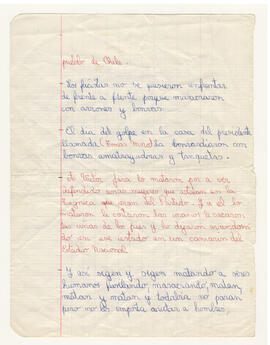 pueblo de Chile.
- Los facistas no se pusieron enfrentar
de frente a frente porque masacraron
con aviones y bombas
- El dia del golpe en la casa del presidente
llamada (Tomas Moro) la bonvardiaron con
bonvas amatrayadoras y tanquetas.
- de Victor Jara lo mataron por a ver
defendido unas mujeres que estavan en la
tegnica que eran del Partido. Y a el lo
mataron le cortaron las manos le sacaron
las uñas de los pies y lo dejaron
en ese estado en un camarin del
Estadio Nacional
- Y asi segen y segen matando a seres
humanos juntando, masacrando, matan,
matan y matan y todabia no paran
pero no les importa matar a hombres,